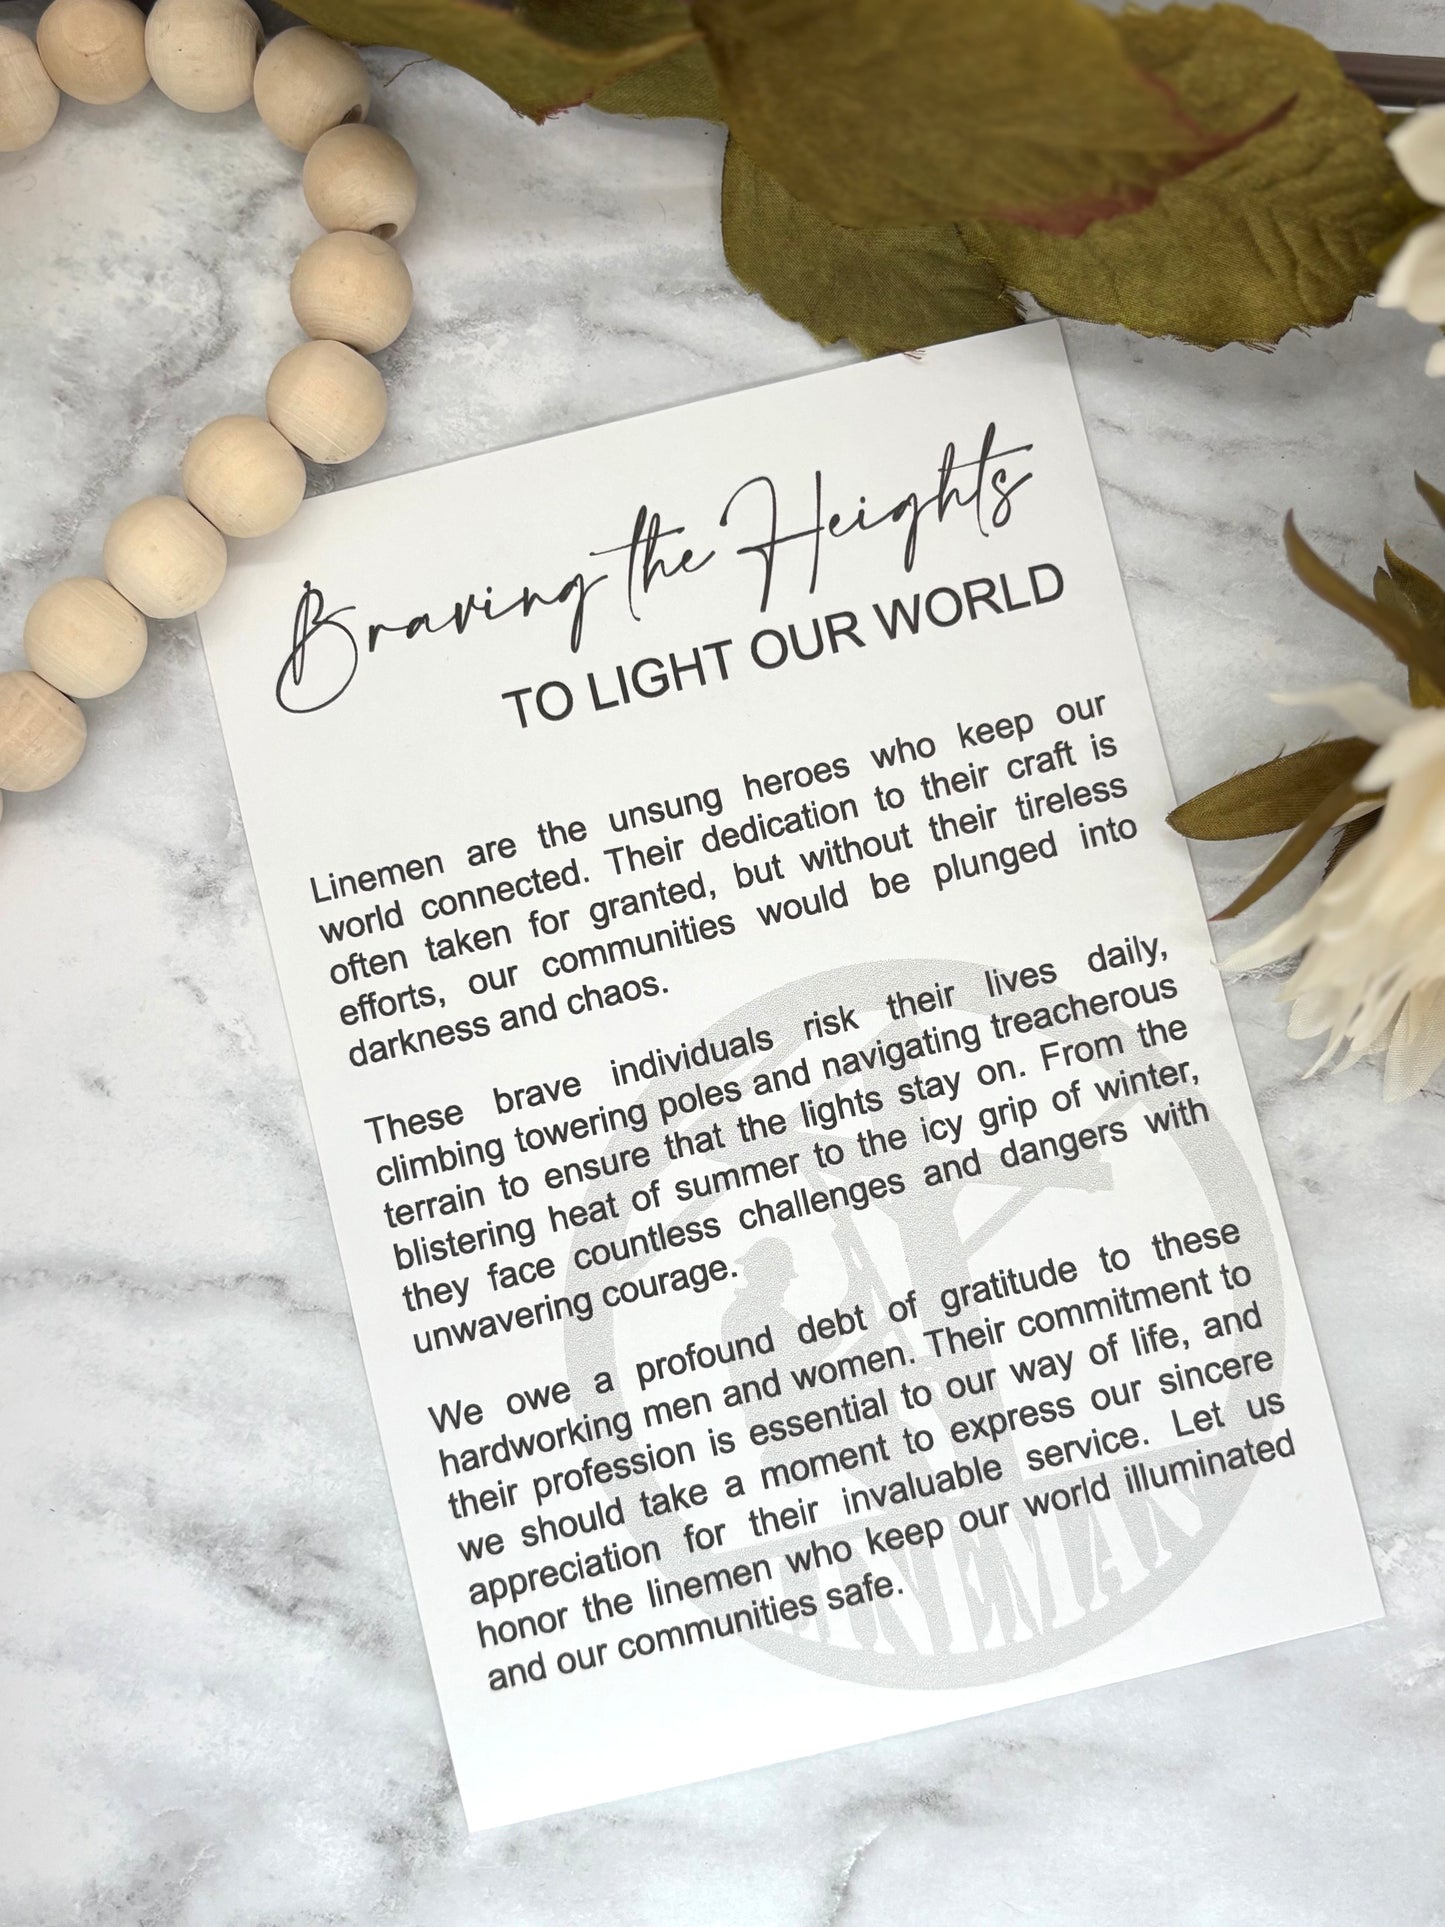 Braving the Heights
TO LIGHT OUR WORLD
Linemen are the unsung heroes who keep our
world connected. Their dedication to their craft is
often taken for granted, but without their tireless
efforts, our communities would be plunged into
darkness and chaos.
These brave individuals risk their lives daily,
climbing towering poles and navigating treacherous
terrain to ensure that the lights stay on. From the
blistering heat of summer to the icy grip of winter,
they face countless challenges and dangers with
unwavering courage.
We owe a profound debt of gratitude to these
hardworking men and women. Their commitment to
their profession is essential to our way of life, and
we should take a moment to express our sincere
appreciation for their invaluable service. Let us
honor the linemen who keep our world illuminated
and our communities safe.
LINEMAN